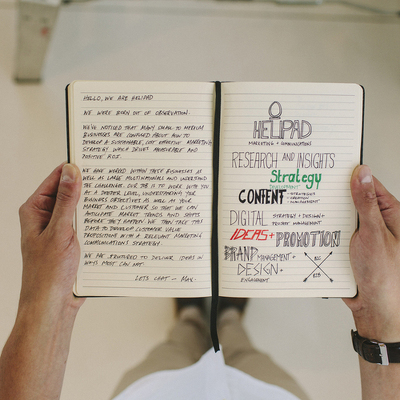 HELLO, WE ARE HELIPAD
WE WERE BORN OUT OF OBSERVATION.
WE'VE NOTICED THAT MANY SMALL TO MEDIUM
BUSINESSES ARE CONFUSED ABOUT HOW TO
DEVELOP A SUSTAINABLE, COST EFFECTIVE MARKETING
STRATEGY WHICH DRIVES MEASURABLE AND
POSITIVE ROI.
WE HAVE WORKED WITHIN THESE BUSINESSES AS
WELL AS LARGE MULTINATIONALS AND UNDERSTAND
THE CHALLENGE. OUR JOB IS TO WORK WITH YOU
AT A DEEPER LEVEL, UNDERSTANDING THE
BUSINESS OBJECTIVES AS WELL AS YOUR
MARKET AND CUSTOMER SO THAT WE CAN
ANTICIPATE MARKET TRENDS AND SHIFTS
BEFORE THEY HAPPEN. WE THEN TAKE THIS
DATA TO DEVELOP CUSTOMER VALUE
PROPOSITIONS WITH A RELEVANT MARKETING
COMMUNICATIONS STRATEGY.
WE ARE STRUCTURED TO DELIVER IDEAS IN
WAYS MOST CAN NOT.
LETS CHAT — MAX.
HELIPAD
MARKETING + COMMUNICATIONS
RESEARCH AND INSIGHTS
Strategy
DEVELOPMENT
CONTENT
DIGITAL STRATEGY + DESIGN +
PROJECT MANAGEMENT
IDEAS + PROMOTION
BRAND MANAGEMENT +
DESIGN +
ENGAGEMENT
B2C
B2B